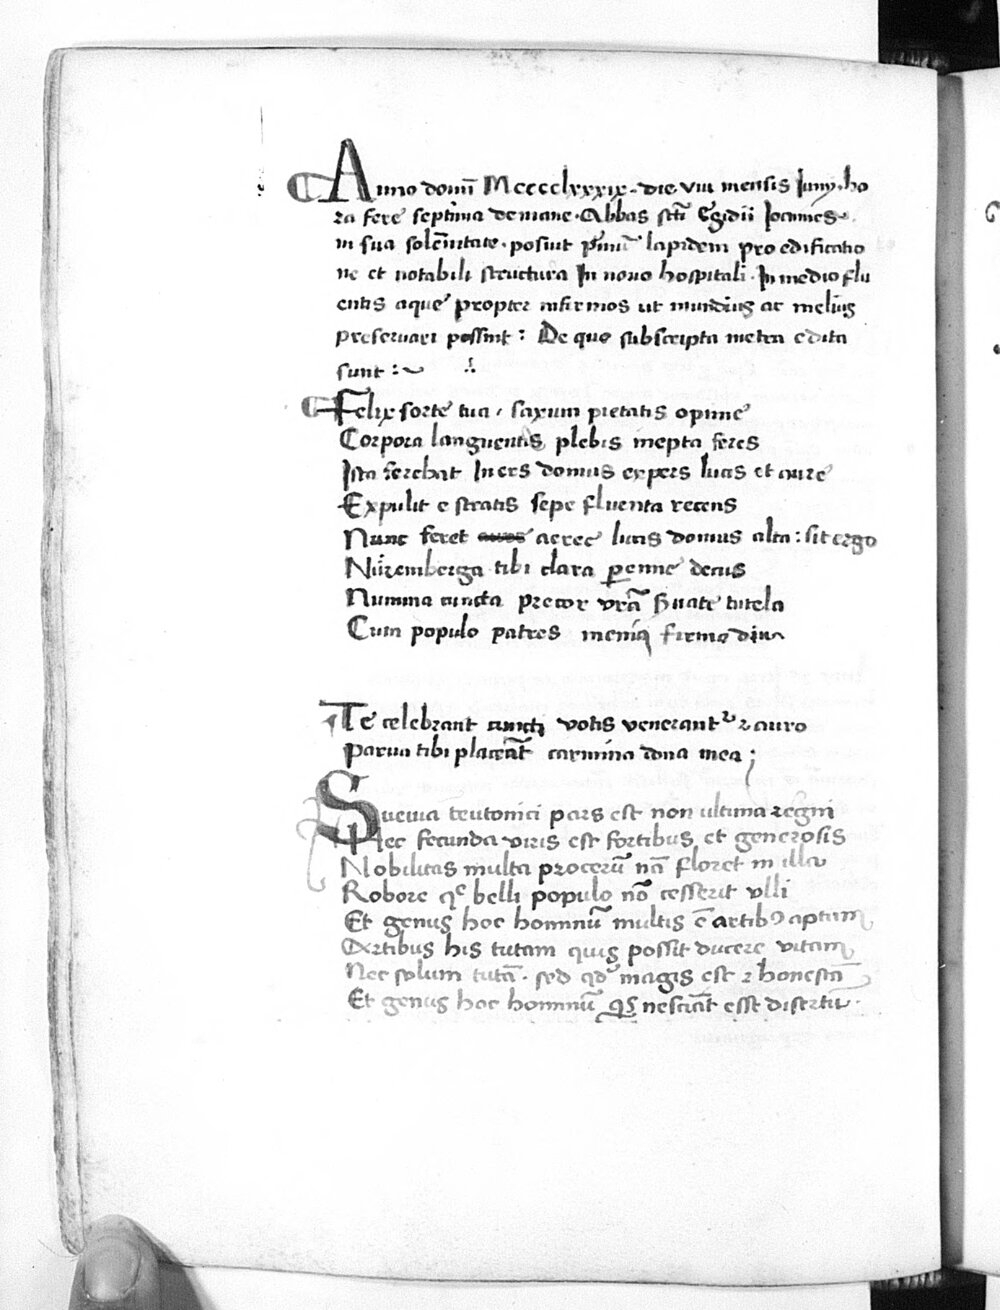 Anno domī Mcccclxxxix. die viii mensis Iunij. ho
ra fere septima de mane. Abbas sctī Egidii Joannes
in sua solēnitate. posuit p̄mū lapidem pro edificatio
ne et notabili structura In nouo hospitali. In medio flu
entis aque propter infirmos ut mundius ac melius
preseruari possint : De quo subscripta metra edita
sunt :~
Felix sorte tua, saxum pietatis opime
Corpora languentis plebis inepta feres
Ista ferebat Iners domus expers lucis et aure
Expulit e stratis sepe fluenta recens
Nunc feret aeree lucis domus alta : sit ergo
Nüremberga tibi clara ꝑenne decus
Numina cuncta precor vr̄a Suate tutela
Cum populo patres meniaqȝ firma diu
Te celebrant cuncti votis venerantᷣ ⁊ auro
Parua tibi placeāt carmina dona mea ;
Sueuia teutonici pars est non ultima regni
Nec fecunda viris est fortibus et generosis
Nobilitas multa procerū nā floret in illa
Robore qȝ belli populo nō cesserit vlli
Et genus hoc hominū multis ē artibꝯ aptum
Artibus his tutam quis possit ducere vitam
Nec solum tutā. sed qd̄ magis est ⁊ honestā
Et genus hoc hominū qs nesciāt esse disertū.